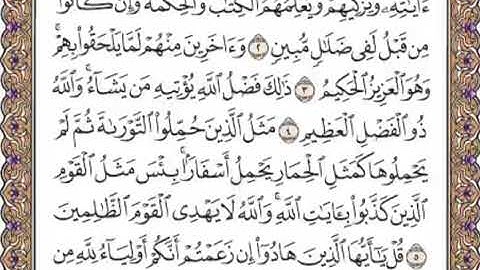 ءَايَٰتِهِۦ وَيُزَكِّيهِمۡ وَيُعَلِّمُهُمُ ٱلۡكِتَٰبَ وَٱلۡحِكۡمَةَ وَإِن كَانُواْ
مِن قَبۡلُ لَفِي ضَلَٰلٖ مُّبِينٖ ٢ وَءَاخَرِينَ مِنۡهُمۡ لَمَّا يَلۡحَقُواْ بِهِمۡۚ
وَهُوَ ٱلۡعَزِيزُ ٱلۡحَكِيمُ ٣ ذَٰلِكَ فَضۡلُ ٱللَّهِ يُؤۡتِيهِ مَن يَشَآءُۚ وَٱللَّهُ
ذُو ٱلۡفَضۡلِ ٱلۡعَظِيمِ ٤ مَثَلُ ٱلَّذِينَ حُمِّلُواْ ٱلتَّوۡرَىٰةَ ثُمَّ لَمۡ
يَحۡمِلُوهَا كَمَثَلِ ٱلۡحِمَارِ يَحۡمِلُ أَسۡفَارَۢاۚ بِئۡسَ مَثَلُ ٱلۡقَوۡمِ
ٱلَّذِينَ كَذَّبُواْ بِـَٔايَٰتِ ٱللَّهِۚ وَٱللَّهُ لَا يَهۡدِي ٱلۡقَوۡمَ ٱلظَّٰلِمِينَ
٥ قُلۡ يَٰٓأَيُّهَا ٱلَّذِينَ هَادُوٓاْ إِن زَعَمۡتُمۡ أَنَّكُمۡ أَوۡلِيَآءُ لِلَّهِ مِن